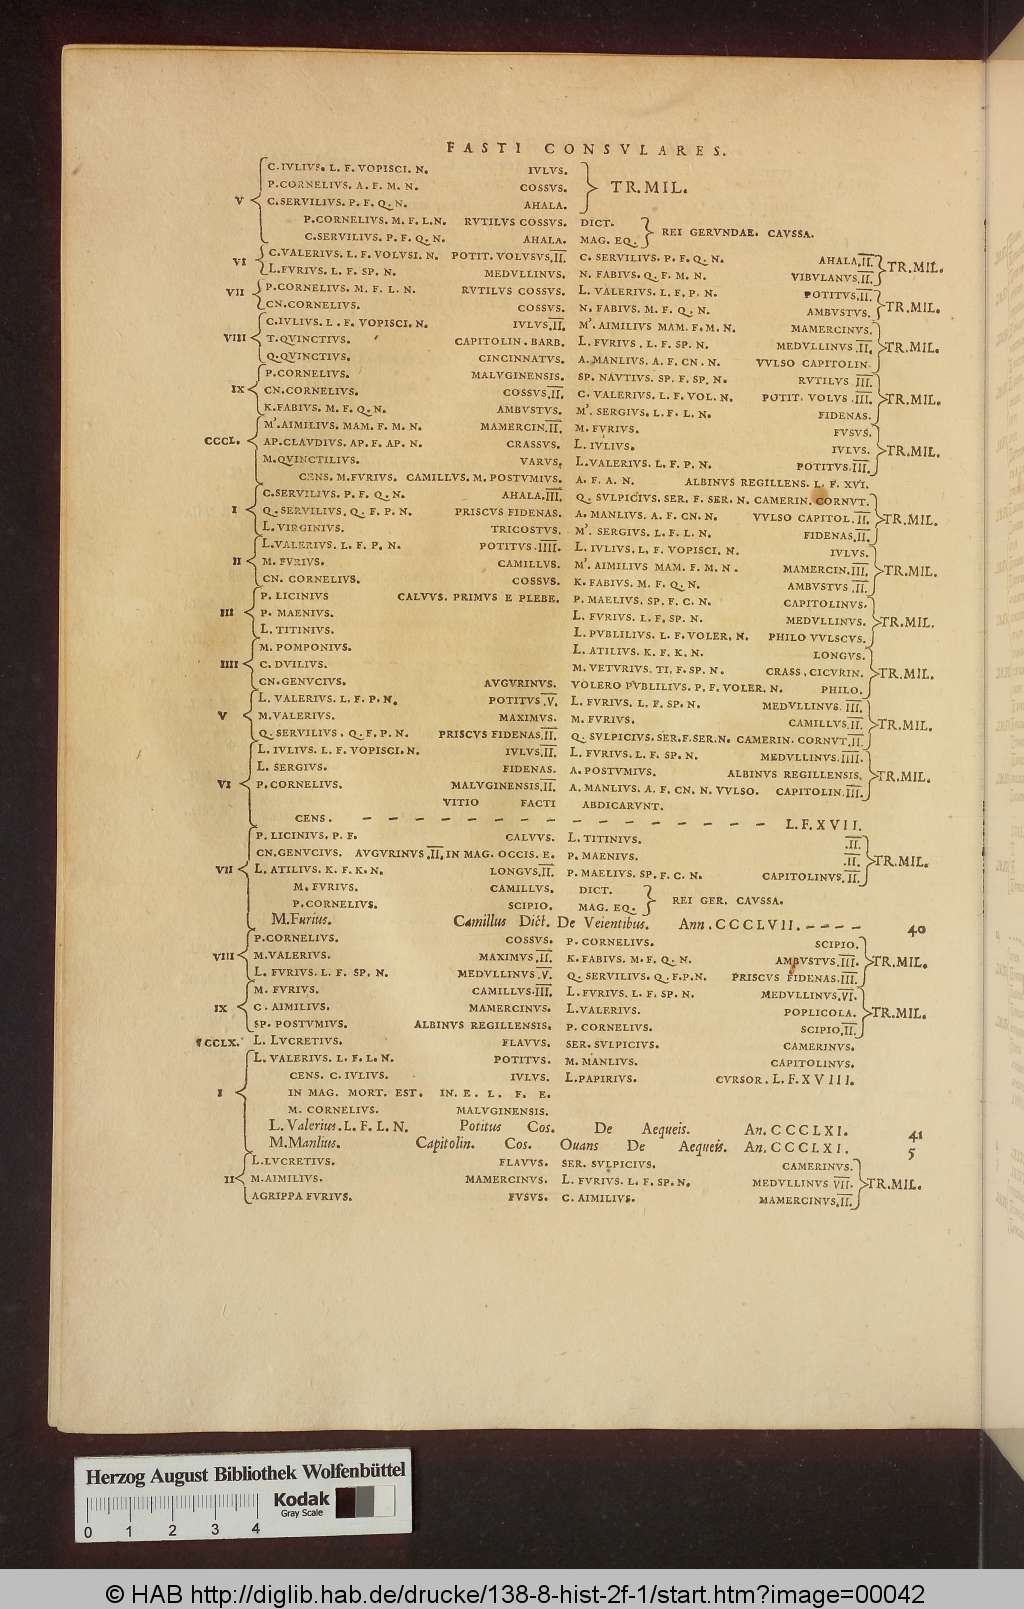 FASTI CONSVLARES.
C. IVLIVS. L. F. VOPISCI. N. IVLVS.
P. CORNELIVS. A. F. M. N. COSSVS. TR. MIL.
V C. SERVILIVS. P. F. Q. N. AHALA.
P. CORNELIVS. M. F. L. N. RVTILVS COSSVS. DICT.
C. SERVILIVS. P. F. Q. N. AHALA. MAG. EQ. REI GERVNDAE. CAVSSA.
VI C. VALERIVS. L. F. VOLVSI. N. POTIT. VOLVSVS. II. C. SERVILIVS. P. F. Q. N. AHALA. II. TR. MIL.
L. FVRIVS. L. F. SP. N. MEDVLLINVS. N. FABIVS. Q. F. M. N. VIBVLANVS. II.
VII P. CORNELIVS. M. F. L. N. RVTILVS COSSVS. L. VALERIVS. L. F. P. N. POTITVS. II. TR. MIL.
CN. CORNELIVS. COSSVS. N. FABIVS. M. F. Q. N. AMBVSTVS.
C. IVLIVS. L. F. VOPISCI. N. IVLVS. II. M'. AIMILIVS MAM. F. M. N. MAMERCINVS.
VIII T. QVINCTIVS. CAPITOLIN. BARB. L. FVRIVS. L. F. SP. N. MEDVLLINVS. II. TR. MIL.
Q. QVINCTIVS. CINCINNATVS. A. MANLIVS. A. F. CN. N. VVLSO CAPITOLIN.
P. CORNELIVS. MALVGINENSIS. SP. NAVTIVS. SP. F. SP. N. RVTILVS III.
IX CN. CORNELIVS. COSSVS. II. C. VALERIVS. L. F. VOL. N. POTIT. VOLVS. III. TR. MIL.
K. FABIVS. M. F. Q. N. AMBVSTVS. M'. SERGIVS. L. F. L. N. FIDENAS.
M'. AIMILIVS. MAM. F. M. N. MAMERCIN. II. M. FVRIVS. FVSVS.
CCCL. AP. CLAVDIVS. AP. F. AP. N. CRASSVS. L. IVLIVS. IVLVS. TR. MIL.
M. QVINCTILIVS. VARVS. L. VALERIVS. L. F. P. N. POTITVS. III.
CENS. M. FVRIVS. CAMILLVS. M. POSTVMIVS. A. F. A. N. ALBINVS REGILLENS. L. F. XVI.
C. SERVILIVS. P. F. Q. N. AHALA. III. Q. SVLPICIVS. SER. F. SER. N. CAMERIN. CORNVT.
I Q. SERVILIVS. Q. F. P. N. PRISCVS FIDENAS. A. MANLIVS. A. F. CN. N. VVLSO CAPITOL. II. TR. MIL.
L. VIRGINIVS. TRICOSTVS. M'. SERGIVS. L. F. L. N. FIDENAS. II.
L. VALERIVS. L. F. P. N. POTITVS. IIII. L. IVLIVS. L. F. VOPISCI. N. IVLVS.
II M. FVRIVS. CAMILLVS. M'. AIMILIVS MAM. F. M. N. MAMERCIN. III. TR. MIL.
CN. CORNELIVS. COSSVS. K. FABIVS. M. F. Q. N. AMBVSTVS. II.
P. LICINIVS CALVVS. PRIMVS E PLEBE. P. MAELIVS. SP. F. C. N. CAPITOLINVS.
III P. MAENIVS. L. FVRIVS. L. F. SP. N. MEDVLLINVS. TR. MIL.
L. TITINIVS. L. PVBLILIVS. L. F. VOLER. N. PHILO VVLSCVS.
M. POMPONIVS. L. ATILIVS. K. F. K. N. LONGVS.
IIII C. DVILIVS. M. VETVRIVS. TI. F. SP. N. CRASS. CICVRIN. TR. MIL.
CN. GENVCIVS. AVGVRINVS. VOLERO PVBLILIVS. P. F. VOLER. N. PHILO.
L. VALERIVS. L. F. P. N. POTITVS. V. L. FVRIVS. L. F. SP. N. MEDVLLINVS. III.
V M. VALERIVS. MAXIMVS. M. FVRIVS. CAMILLVS. II. TR. MIL.
Q. SERVILIVS. Q. F. P. N. PRISCVS FIDENAS. II. Q. SVLPICIVS. SER. F. SER. N. CAMERIN. CORNVT. II.
L. IVLIVS. L. F. VOPISCI. N. IVLVS. II. L. FVRIVS. L. F. SP. N. MEDVLLINVS. IIII.
L. SERGIVS. FIDENAS. A. POSTVMIVS. ALBINVS REGILLENSIS. TR. MIL.
VI P. CORNELIVS. MALVGINENSIS. II. A. MANLIVS. A. F. CN. N. VVLSO. CAPITOLIN. III.
VITIO FACTI ABDICARVNT.
CENS. – – – – – – – – – – – – – – – – L. F. XVII.
P. LICINIVS. P. F. CALVVS. L. TITINIVS. II.
CN. GENVCIVS. AVGVRINVS. II. IN MAG. OCCIS. E. P. MAENIVS. II. TR. MIL.
VII L. ATILIVS. K. F. K. N. LONGVS. II. P. MAELIVS. SP. F. C. N. CAPITOLINVS. II.
M. FVRIVS. CAMILLVS. DICT.
P. CORNELIVS. SCIPIO. MAG. EQ. REI GER. CAVSSA.
M. Furius. Camillus Dict. De Veientibus. Ann. CCCLVII. – – – – 40
P. CORNELIVS. COSSVS. P. CORNELIVS. SCIPIO.
VIII M. VALERIVS. MAXIMVS. II. K. FABIVS. M. F. Q. N. AMBVSTVS. III. TR. MIL.
L. FVRIVS. L. F. SP. N. MEDVLLINVS. V. Q. SERVILIVS. Q. F. P. N. PRISCVS FIDENAS. III.
M. FVRIVS. CAMILLVS. III. L. FVRIVS. L. F. SP. N. MEDVLLINVS. VI.
IX C. AIMILIVS. MAMERCINVS. L. VALERIVS. POPLICOLA. TR. MIL.
SP. POSTVMIVS. ALBINVS REGILLENSIS. P. CORNELIVS. SCIPIO. II.
CCCLX. L. LVCRETIVS. FLAVVS. SER. SVLPICIVS. CAMERINVS.
L. VALERIVS. L. F. L. N. POTITVS. M. MANLIVS. CAPITOLINVS.
CENS. C. IVLIVS. IVLVS. L. PAPIRIVS. CVRSOR. L. F. XVIII.
I IN MAG. MORT. EST. IN. E. L. F. E.
M. CORNELIVS. MALVGINENSIS.
L. Valerius. L. F. L. N. Potitus Cos. De Aequeis. An. CCCLXI. 41
M. Manlius. Capitolin. Cos. Ouans De Aequeis. An. CCCLXI. 5
L. LVCRETIVS. FLAVVS. SER. SVLPICIVS. CAMERINVS.
II M. AIMILIVS. MAMERCINVS. L. FVRIVS. L. F. SP. N. MEDVLLINVS VII. TR. MIL.
AGRIPPA FVRIVS. FVSVS. C. AIMILIVS. MAMERCINVS. II.
Herzog August Bibliothek Wolfenbüttel
Kodak
Gray Scale
0 1 2 3 4
© HAB http://diglib.hab.de/drucke/138-8-hist-2f-1/start.htm?image=00042